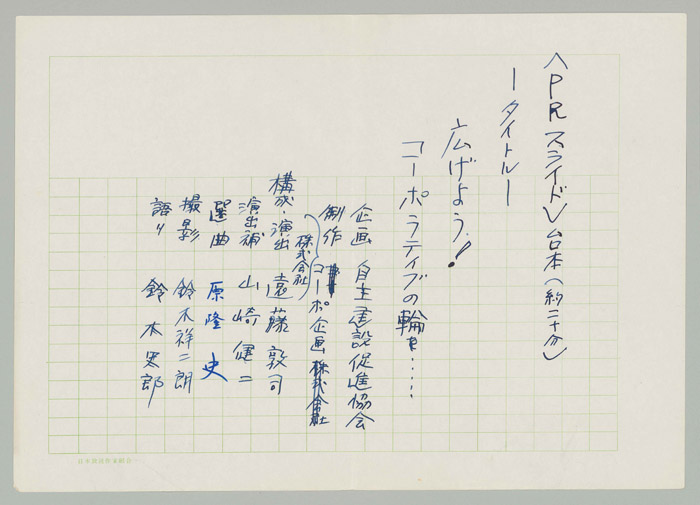 〈PRスライド〉台本(約二十分)
―タイトル―
広げよう!
コーポラティブの輪を……
企画 自主建設促進協会
制作 (株式会社)コーポ企画株式会社
構成・演出 遠藤敦司
演出補 山崎健二
選曲 原隆史
撮影 鈴木祥二朗
語り 鈴木史郎